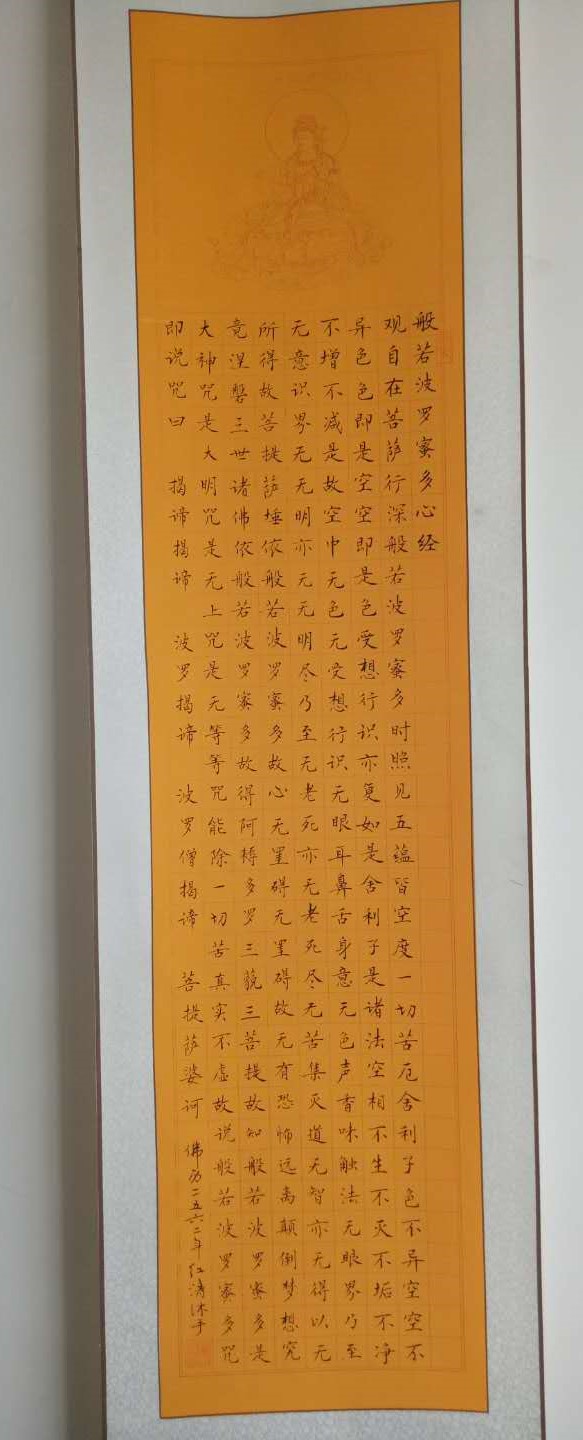 般若波罗蜜多心经
观自在菩萨行深般若波罗蜜多时照见五蕴皆空度一切苦厄舍利子色不异空空不
异色色即是空空即是色受想行识亦复如是舍利子是诸法空相不生不灭不垢不净
不增不减是故空中无色无受想行识无眼耳鼻舌身意无色声香味触法无眼界乃至
无意识界无无明亦无无明尽乃至无老死亦无老死尽无苦集灭道无智亦无得以无
所得故菩提萨埵依般若波罗蜜多故心无罣碍无罣碍故无有恐怖远离颠倒梦想究
竟涅槃三世诸佛依般若波罗蜜多故得阿耨多罗三藐三菩提故知般若波罗蜜多是
大神咒是大明咒是无上咒是无等等咒能除一切苦真实不虚故说般若波罗蜜多咒
即说咒曰 揭谛揭谛 波罗揭谛 波罗僧揭谛 菩提萨婆诃
佛历二五六二年红涛沐手